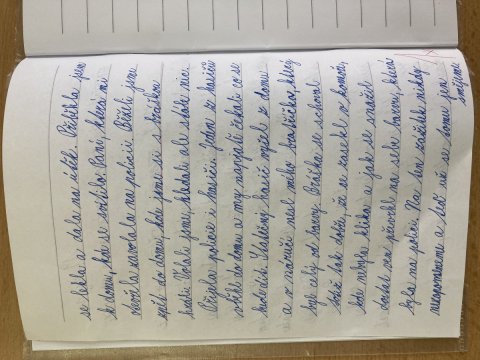 se lekla a dala na útěk. Přiběhla jsem
k domu, kde se svítilo. Paní, která mi
otevřela zavolala na policii. Běželi jsme
zpět do domu, kde jsme si s bráškou
hráli. Volali jsme, hledali ale stále nic.
Přijela policie i hasiči. Jeden z hasičů
vtrhl do domu a my napjatě čekali co se
bude dít. Statečný hasič vyšel z domu
a v náručí nesl mého brášku, který
byl celý od barvy. Bráška se schoval
totiž tak dobře, že se zasekl v komoře,
kde nebyla klika a jak se snažil
dostat ven převrhl na sebe barvu, která
byla na polici. Na ten zážitek nikdy
nezapomeneme a teď už se tomu jen
smějeme.